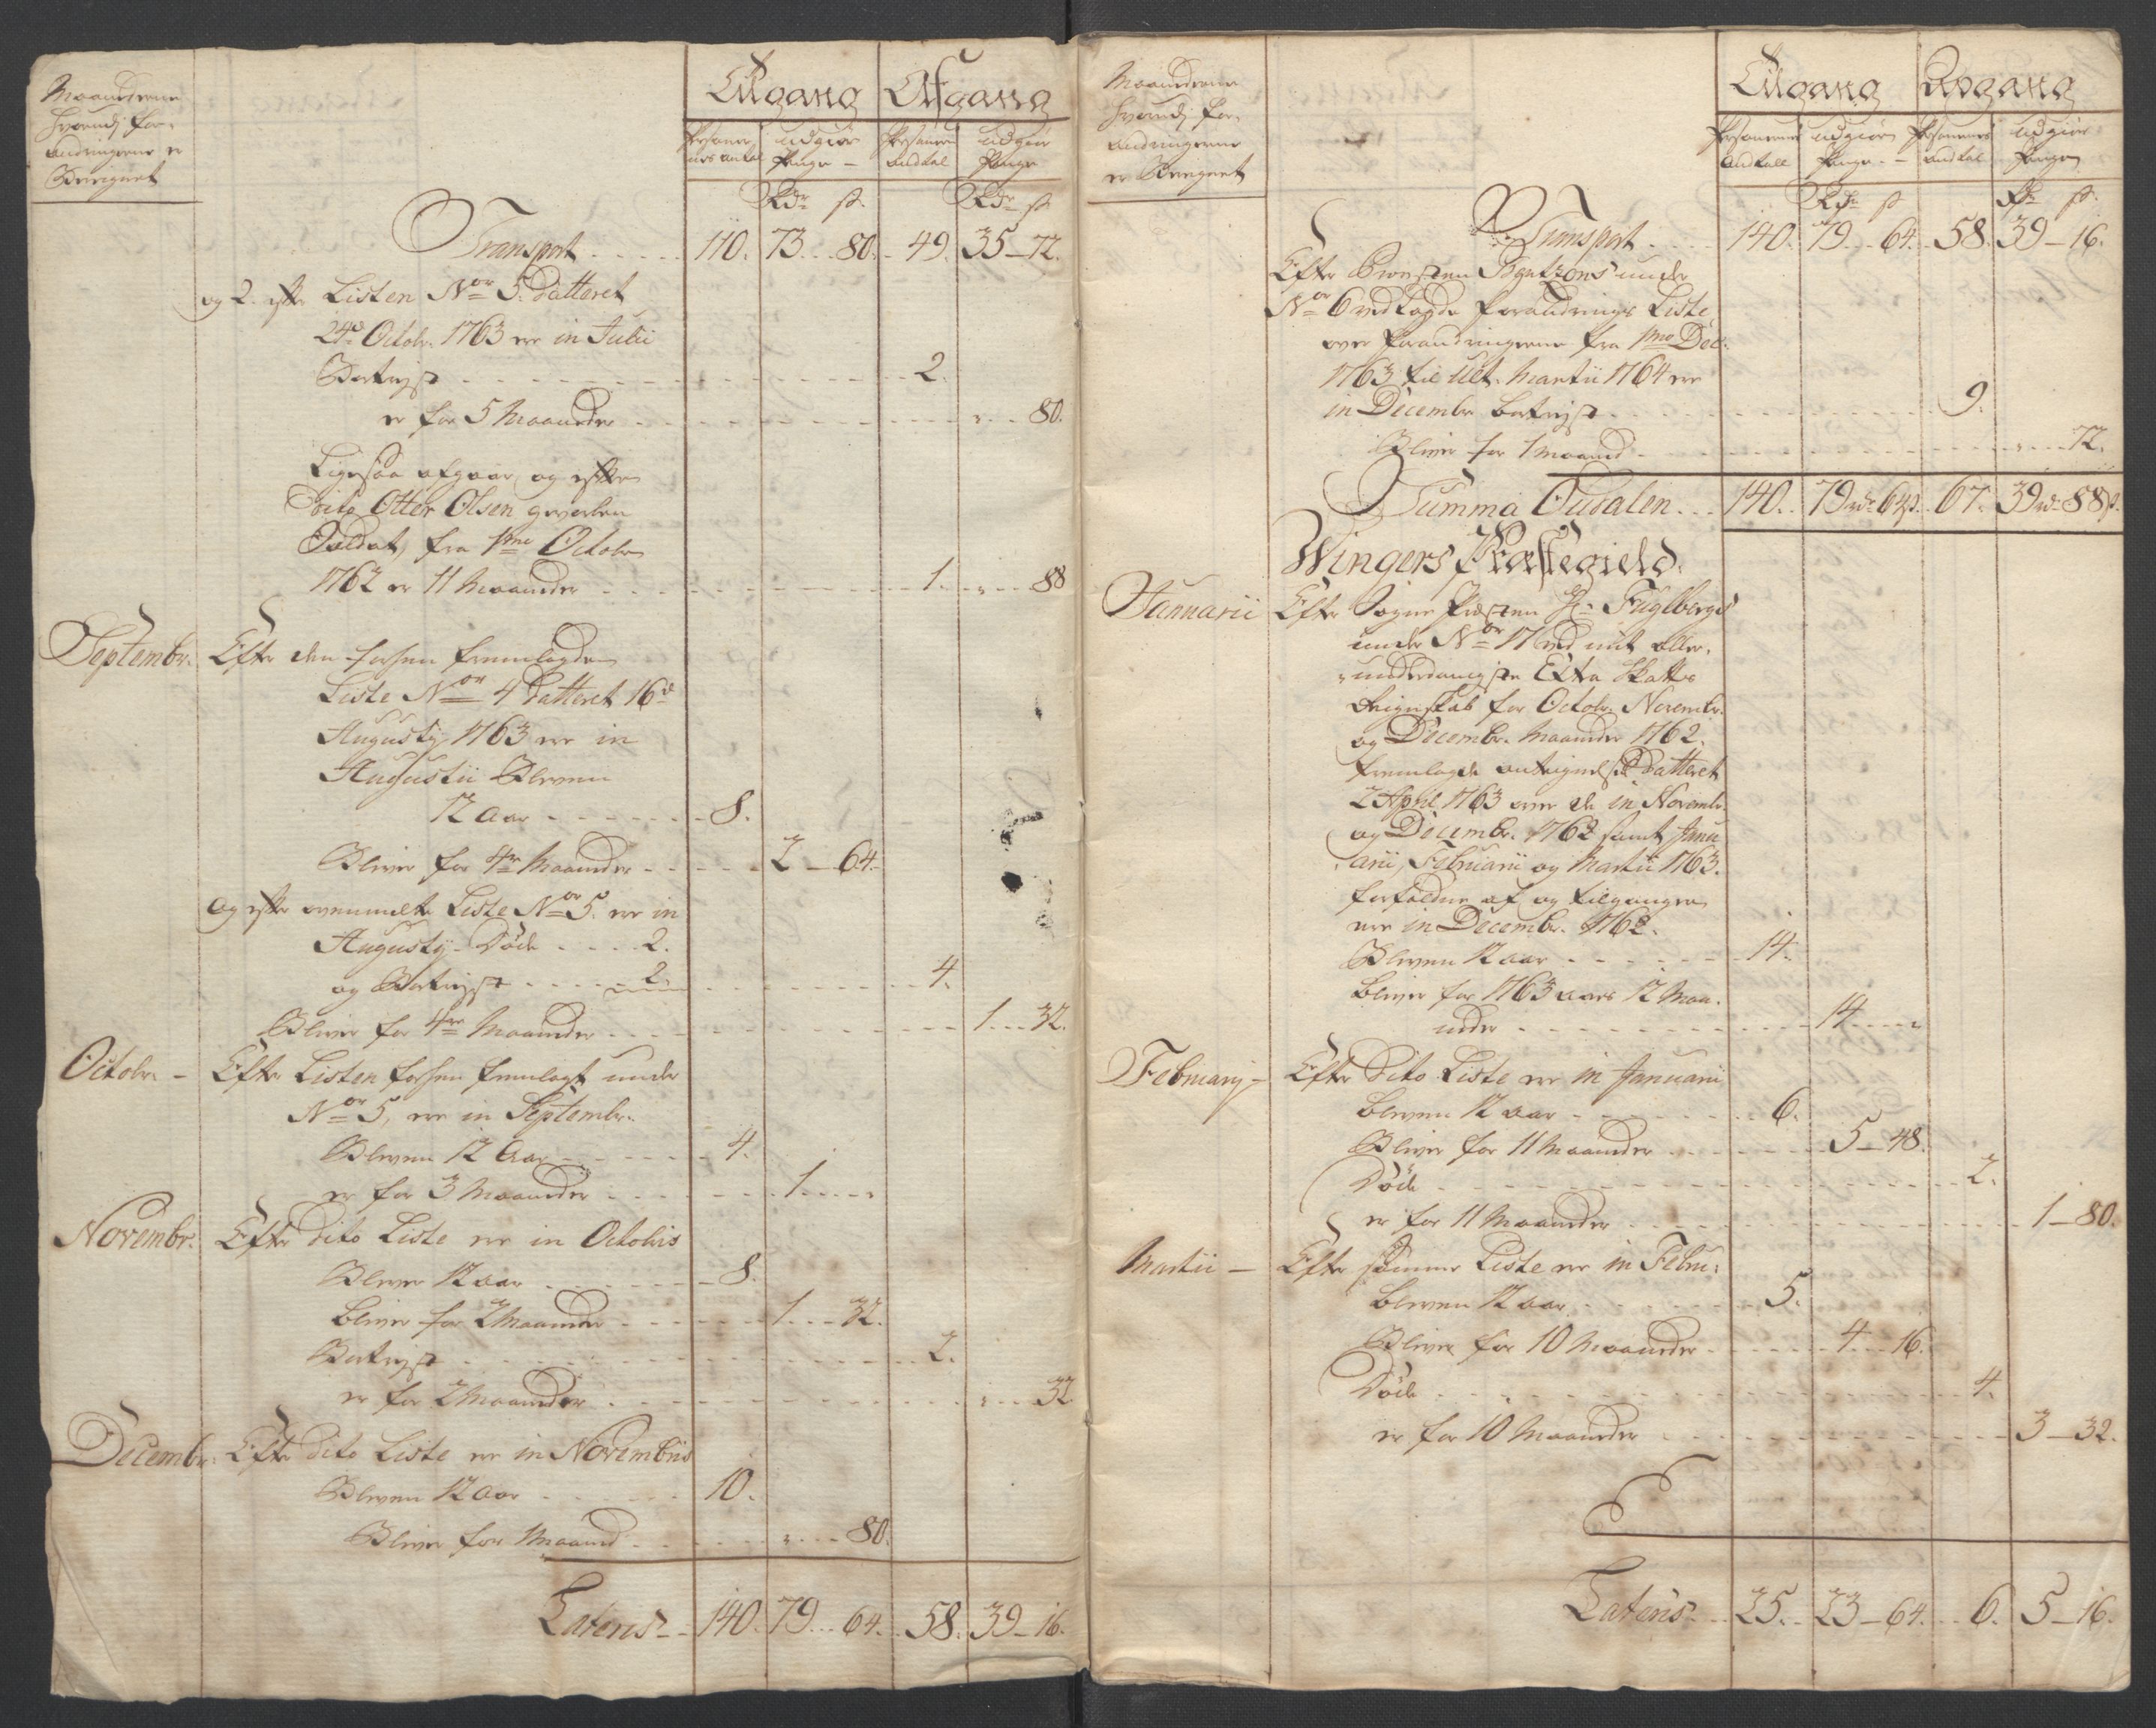 Maanederne
hvorudj for-
andringerne er
Beregnet
Tilgang Afgang
Personer-
nes antal
udgiør
Penge -
Personer
andtal
udgiør
Penge
Rdr ß. Rdr ß
Transport . . . . . 110. 73 . . 80. 49. 35 - 72.
og 2. efter Listen Nor 5. Datteret
24de Octobr. 1763 ere in Julii
Bortrejst . . . 2.
er for 5 Maaneder . . . " . . 80.
Ligesaa afgaar og efter
Dito Otter Olsen gevorben
Soldat, fra 1me Octobr
1762 er 11 Maaneder . . . 1. " . . 88
Septembr. Efter den forhen fremlagde
Liste Nor 4 Datteret 16de
Augusty 1763 ere in
Augustii Bleven
12 Aar . . . 8.
Bliver for 4re Maaneder . . . 2 - 64.
Og efter ovenmelte Liste Nor 5. ere in
Augusty Døde . . . . 2.
og Bortrejst . . . . 2 . . . 4.
Bliver for 4re Maaneder . . . 1 . . 32.
Octobr. - Efter Listen forhen fremlagt under
Nor 5, ere in Septembr.
Bleven 12 Aar . . . 4.
er for 3 Maaneder . . . 1 . . . "
Novembr. Efter Dito Liste ere in Octobris
Bleven 12 aar . . . 8.
bliver for 2 Maaneder . . . 1 . . 32.
Bortrejst . . . 2.
er for 2 Maaneder . . . " . . 32
Decembr. Efter Dito Liste ere in Novembris
Bleven 12 Aar . . . 10.
Bliver for 1 Maaned . . . " . . 80.
Lateris - - 140. 79 . . 64. 58. 39 - 16.
Maanederne
hvorudj for-
andringerne
er Beregnet
Tilgang Avgang
Personernes
andtall
udgiør
Penge - -
Personernes
andtal
udgiør
Penge
Rdr ß Rdr ß.
Transport . . . 140. 79 . . 64. 58. 39 - 16.
Efter Præsten under
Nor 6 vedlagde forandrings Liste,
over forandringerne fra 1mo Dec.
1763 til Ult. Martii 1764 ere
in Decembr bortrejst . . . 9.
Bliver for 1 Maaned . . . " . . 72.
Summa Oudalen . . . 140. 79rdr 64ß. 67. 39rdr 88ß.
Wingers Præstegield.
Januarii Efter Sogne Præsten Hr. Fuglbergs
under Nor 17 ved mit aller-
underdanigste Extra Skattes
Reigenskab for Octobr. Novembr.
og Decembr. Maaneder 1762.
fremlagde antegnelse Datteret
2 April 1763 over de in Novembr.
og Decembr. 1762 samt Janu
arii, Februarii og Martii 1763.
forfaldne af og tilganger
ere in Decembr. 1762.
Bleven 12 aar . . . 14.
bliver for 1763 aars 12 Maa-
neder . . . 14 . . . "
Februarij - Efter Dito Liste ere in Januarii
bleven 12 aar . . . 6.
Bliver for 11 Maaneder . . . 5 - 48.
Døde . . . 2.
er for 11 Maaneder . . . 1 - 80.
Martii - Efter samme Liste ere in Febru:
bleven 12 aar . . . 5.
Bliver for 10 Maaneder . . . 4 . . 16.
Døde . . . 4.
er for 10 Maaneder . . . 3 - 32.
Lateris - . . 25. . 23 - 64. . 6. 5 - 16.